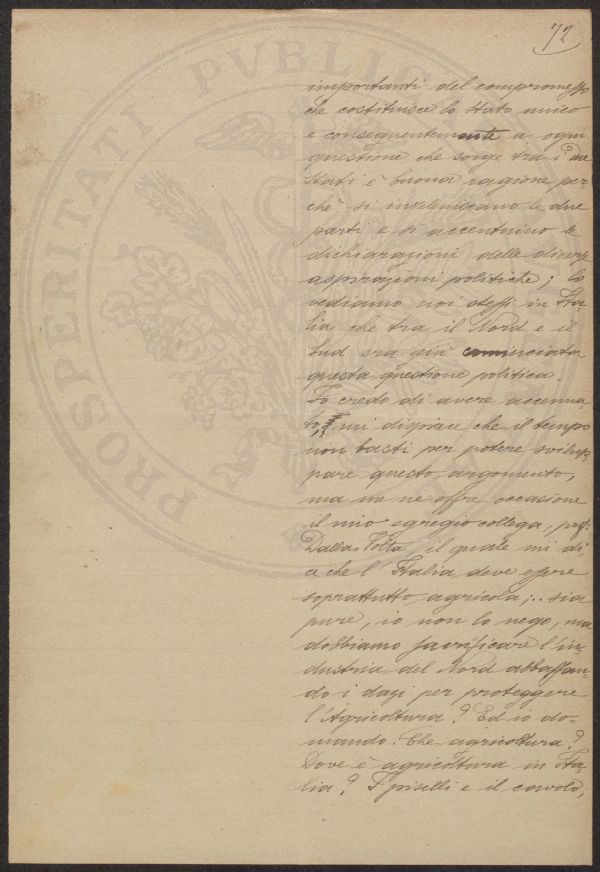 72
importanti del compromesso
che costituisce lo Stato unico
e conseguentemente a ogni
questione che sorge tra i due
Stati è buona ragione per
chè si inveleniscano le due
parti e si accentuino le
dichiarazioni delle diverse
aspirazioni politiche; lo
vediamo noi stessi in Ita-
lia che tra il Nord e il
Sud era già cominciata
questa questione politica.
Io credo di avere accenna-
to, mi dispiace che il tempo
non basti per potere svilup-
pare questo argomento,
ma me ne offre occasione
il mio egregio collega, prof.
Dalla Volta, il quale mi di
ce che l'Italia deve essere
soprattutto agricola;.. sia
pure, io non lo nego, ma
dobbiamo sacrificare l'in-
dustria del Nord abbassan-
do i dazi per proteggere
l'Agricoltura? Ed io do-
mando: Che agricoltura?
Dove è agricoltura in Ita-
lia? I piselli e il cavolo,
PROSPERITATI PVBLIC